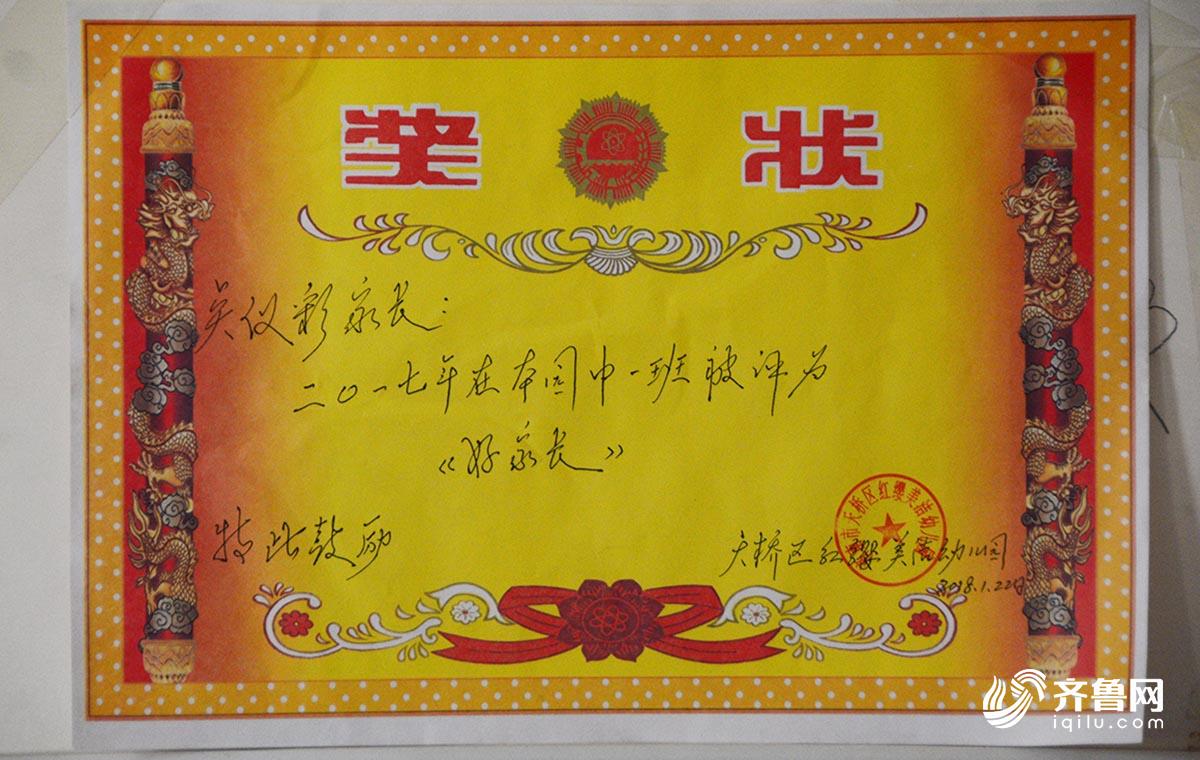 奖 状
吴仪彩家长：
二〇一七年在本园中一班被评为
《好家长》
特此鼓励
市天桥区红缨美洁幼儿园
天桥区红缨美洁幼儿园
2018.1.22日
齐鲁网
iqilu.com